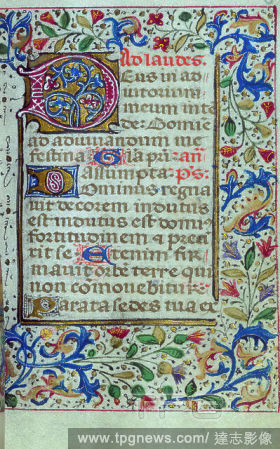 Ad laudes.
Deus in ad
iutorium
meum inte
de. Domine
ad adiuvandum me
festina Gl'a pri. an̄
Assumpta. p̄s.
Dominus regna
vit decorem indutus
est indutus est domi
fortitudinem et preci
xit se Etenim fir
mavit orbe terre qui
non comovebitur
Parata sedes tua e
www.tpgnews.com/ 達志影像